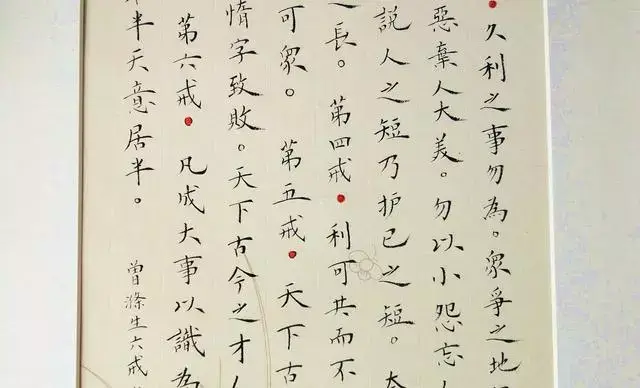 久利之事勿為。眾爭之地
惡棄人大美。勿以小怨忘人
說人之短乃护己之短。
之長。第四戒•利可共而不
可眾。第五戒•天下古
惰字致敗。天下古今之才人
第六戒•凡成大事以識為
半天意居半。
曾滌生六戒